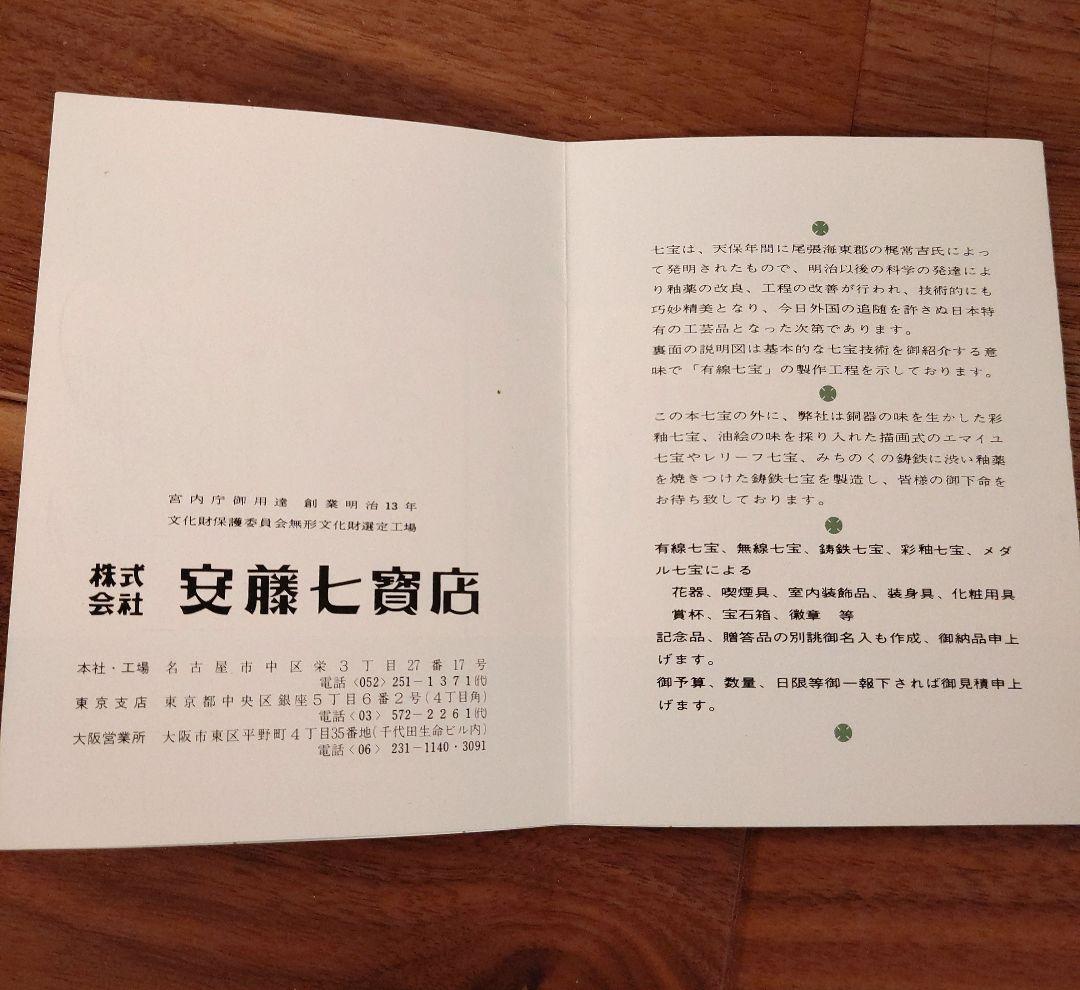 宮内庁御用達 創業明治13年
文化財保護委員会無形文化財選定工場
株式会社 安藤七寶店
本社・工場 名古屋市中区栄3丁目27番17号
電話〈052〉251-1371㈹
東京支店 東京都中央区銀座5丁目6番2号(4丁目角)
電話〈03〉572-2261㈹
大阪営業所 大阪市東区平野町4丁目35番地(千代田生命ビル内)
電話〈06〉231-1140・3091
七宝は、天保年間に尾張海東郡の梶常吉氏によっ
て発明されたもので、明治以後の科学の発達によ
り釉薬の改良、工程の改善が行われ、技術的にも
巧妙精美となり、今日外国の追随を許さぬ日本特
有の工芸品となった次第であります。
裏面の説明図は基本的な七宝技術を御紹介する意
味で「有線七宝」の製作工程を示しております。
この本七宝の外に、弊社は銅器の味を生かした彩
釉七宝、油絵の味を採り入れた描画式のエマイユ
七宝やレリーフ七宝、みちのくの鋳鉄に渋い釉薬
を焼きつけた鋳鉄七宝を製造し、皆様の御下命を
お待ち致しております。
有線七宝、無線七宝、鋳鉄七宝、彩釉七宝、メダ
ル七宝による
花器、喫煙具、室内装飾品、装身具、化粧用具
賞杯、宝石箱、徽章 等
記念品、贈答品の別誂御名入も作成、御納品申上
げます。
御予算、数量、日限等御一報下されば御見積申上
げます。